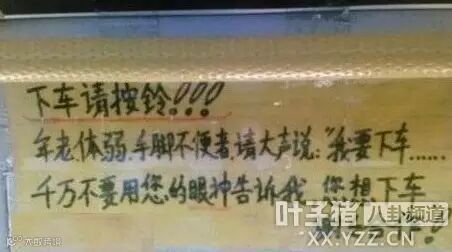 下车请按铃!!!
年老体弱.手脚不便者.请大声说:"我要下车……
千万不要用您的眼神告诉我 您想下车
叶子猪 八卦频道
XX.YZZ.CN
大叔跨境